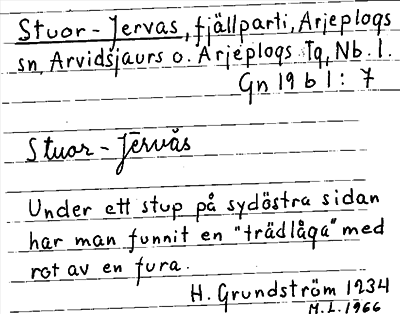 Stuor-Jervas, fjällparti, Arjeplogs
sn, Arvidsjaurs o. Arjeplogs Tg, Nb. l.
Gn 19 b 1 : 7
Stuor-Jērvás
Under ett stup på sydöstra sidan
har man funnit en "trädlåga" med
rot av en fura.
H. Grundström 1234
M.L. 1966